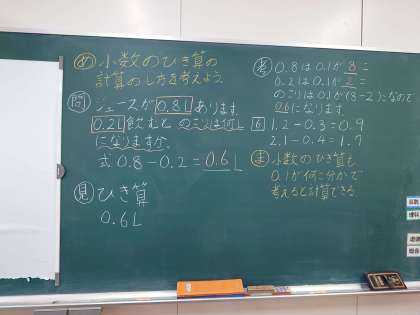 め 小数のひき算の
計算のしかたを考えよう。
問 ジュースが0.8Lあります。
0.2L飲むとのこりは何L
になりますか。
式 0.8-0.2=0.6L
見 ひき算
0.6L
考 0.8は0.1が8こ
0.2は0.1が2こ
のこりは0.1が(8-2)こなので
0.6になります。
6 1.2-0.3=0.9
2.1-0.4=1.7
ま 小数のひき算も
0.1が何こ分かで
考えると計算できる。
算数
理科
道徳
総合